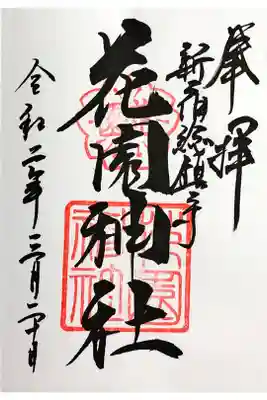 奉拝
新宿総鎮守
花園神社
令和二年二月二十日